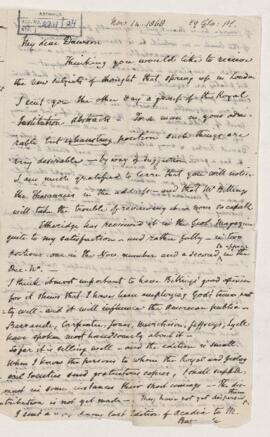 Nov 14. 1868
My dear Dawson
Thinking you would like to receive
the new subjects of thought that spring up in London
I sent you the other day a group of the Royal
Institution abstracts. To a man in your
rable but exhausting position such things are
very desirable - by way of suggestion
I am much gratified to learn that you will notice
the Thesaurus in the address - and that Mr Billings
will take the trouble of reviewing
Etheridge has reviewed it in the Geol. Magazine
quite to my satisfaction - and rather fully - in two
portions, one in the Nov. number and a second, in the
Dec. No.
I think almost important to have Billings' good opinion
for it shows that I have been employing God's time
ly well - and it will influence the American public -
Barrande, Carpenter, Jones, Murchison, Jeffreys, Lyell
have spoken most handsomely about it -
So far it is selling well - and the edition is small.
When I know the persons to whom the Royal and Geolog
ical Societies send gratuitous copies, I shall
in some instances their short comings - The dis
tribution is not yet made -
I sent a last Edition of Acadia to M.
Bar